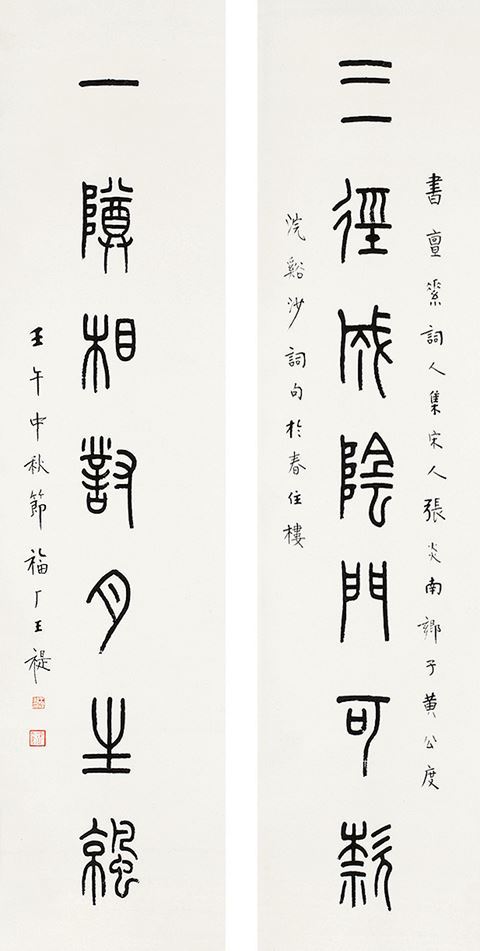 三徑成陰門可款
書亶素詞人集宋人張炎南鄉子黃公度
浣谿沙詞句於春住樓
一尊相對月生䬙
壬午中秋節福厂王禔